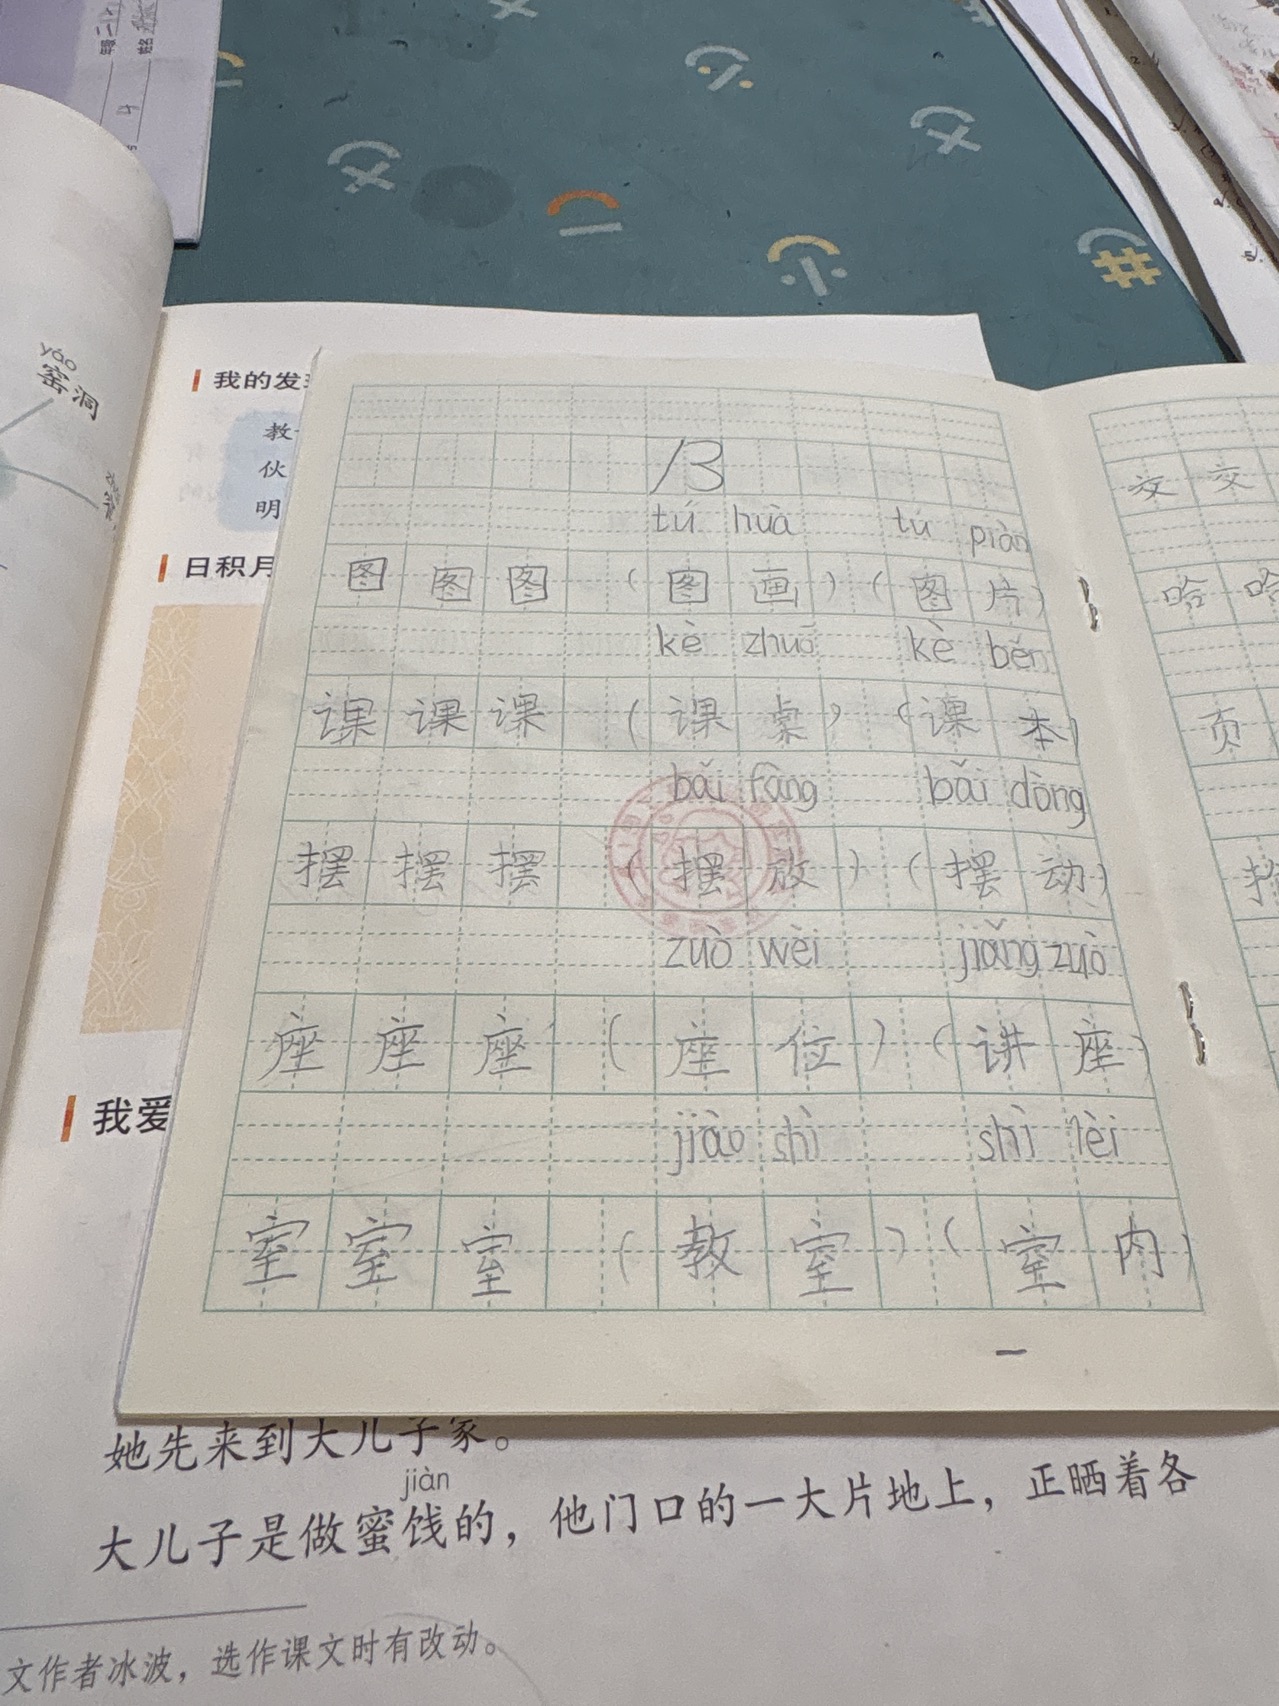 年级
姓名
yáo
窑洞
我的发
教
伙
明
日积月
我爱
13
tú huà tú piàn
图 图 图 (图画)(图片)
kè zhuō kè běn
课 课 课 (课桌)(课本)
bǎi fàng bǎi dòng
摆 摆 摆 (摆放)(摆动)
zuò wèi jiǎng zuò
座 座 座 (座位)(讲座)
jiào shì shì lèi
室 室 室 (教室)(室内)
交 交
哈 哈
页
她先来到大儿子家。
jiàn
大儿子是做蜜饯的，他门口的一大片地上，正晒着各
文作者冰波，选作课文时有改动。